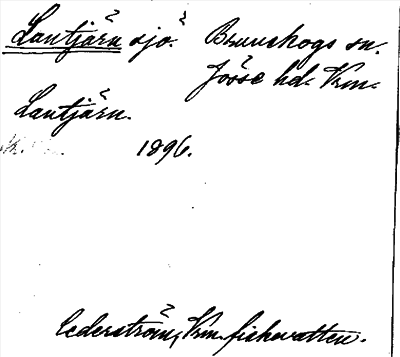 Lautjärn sjö. Brunskogs sn.
Jösse hd. Vrm.
Lautjärn.
1896.
Cederström, Vrm. fiskevatten.